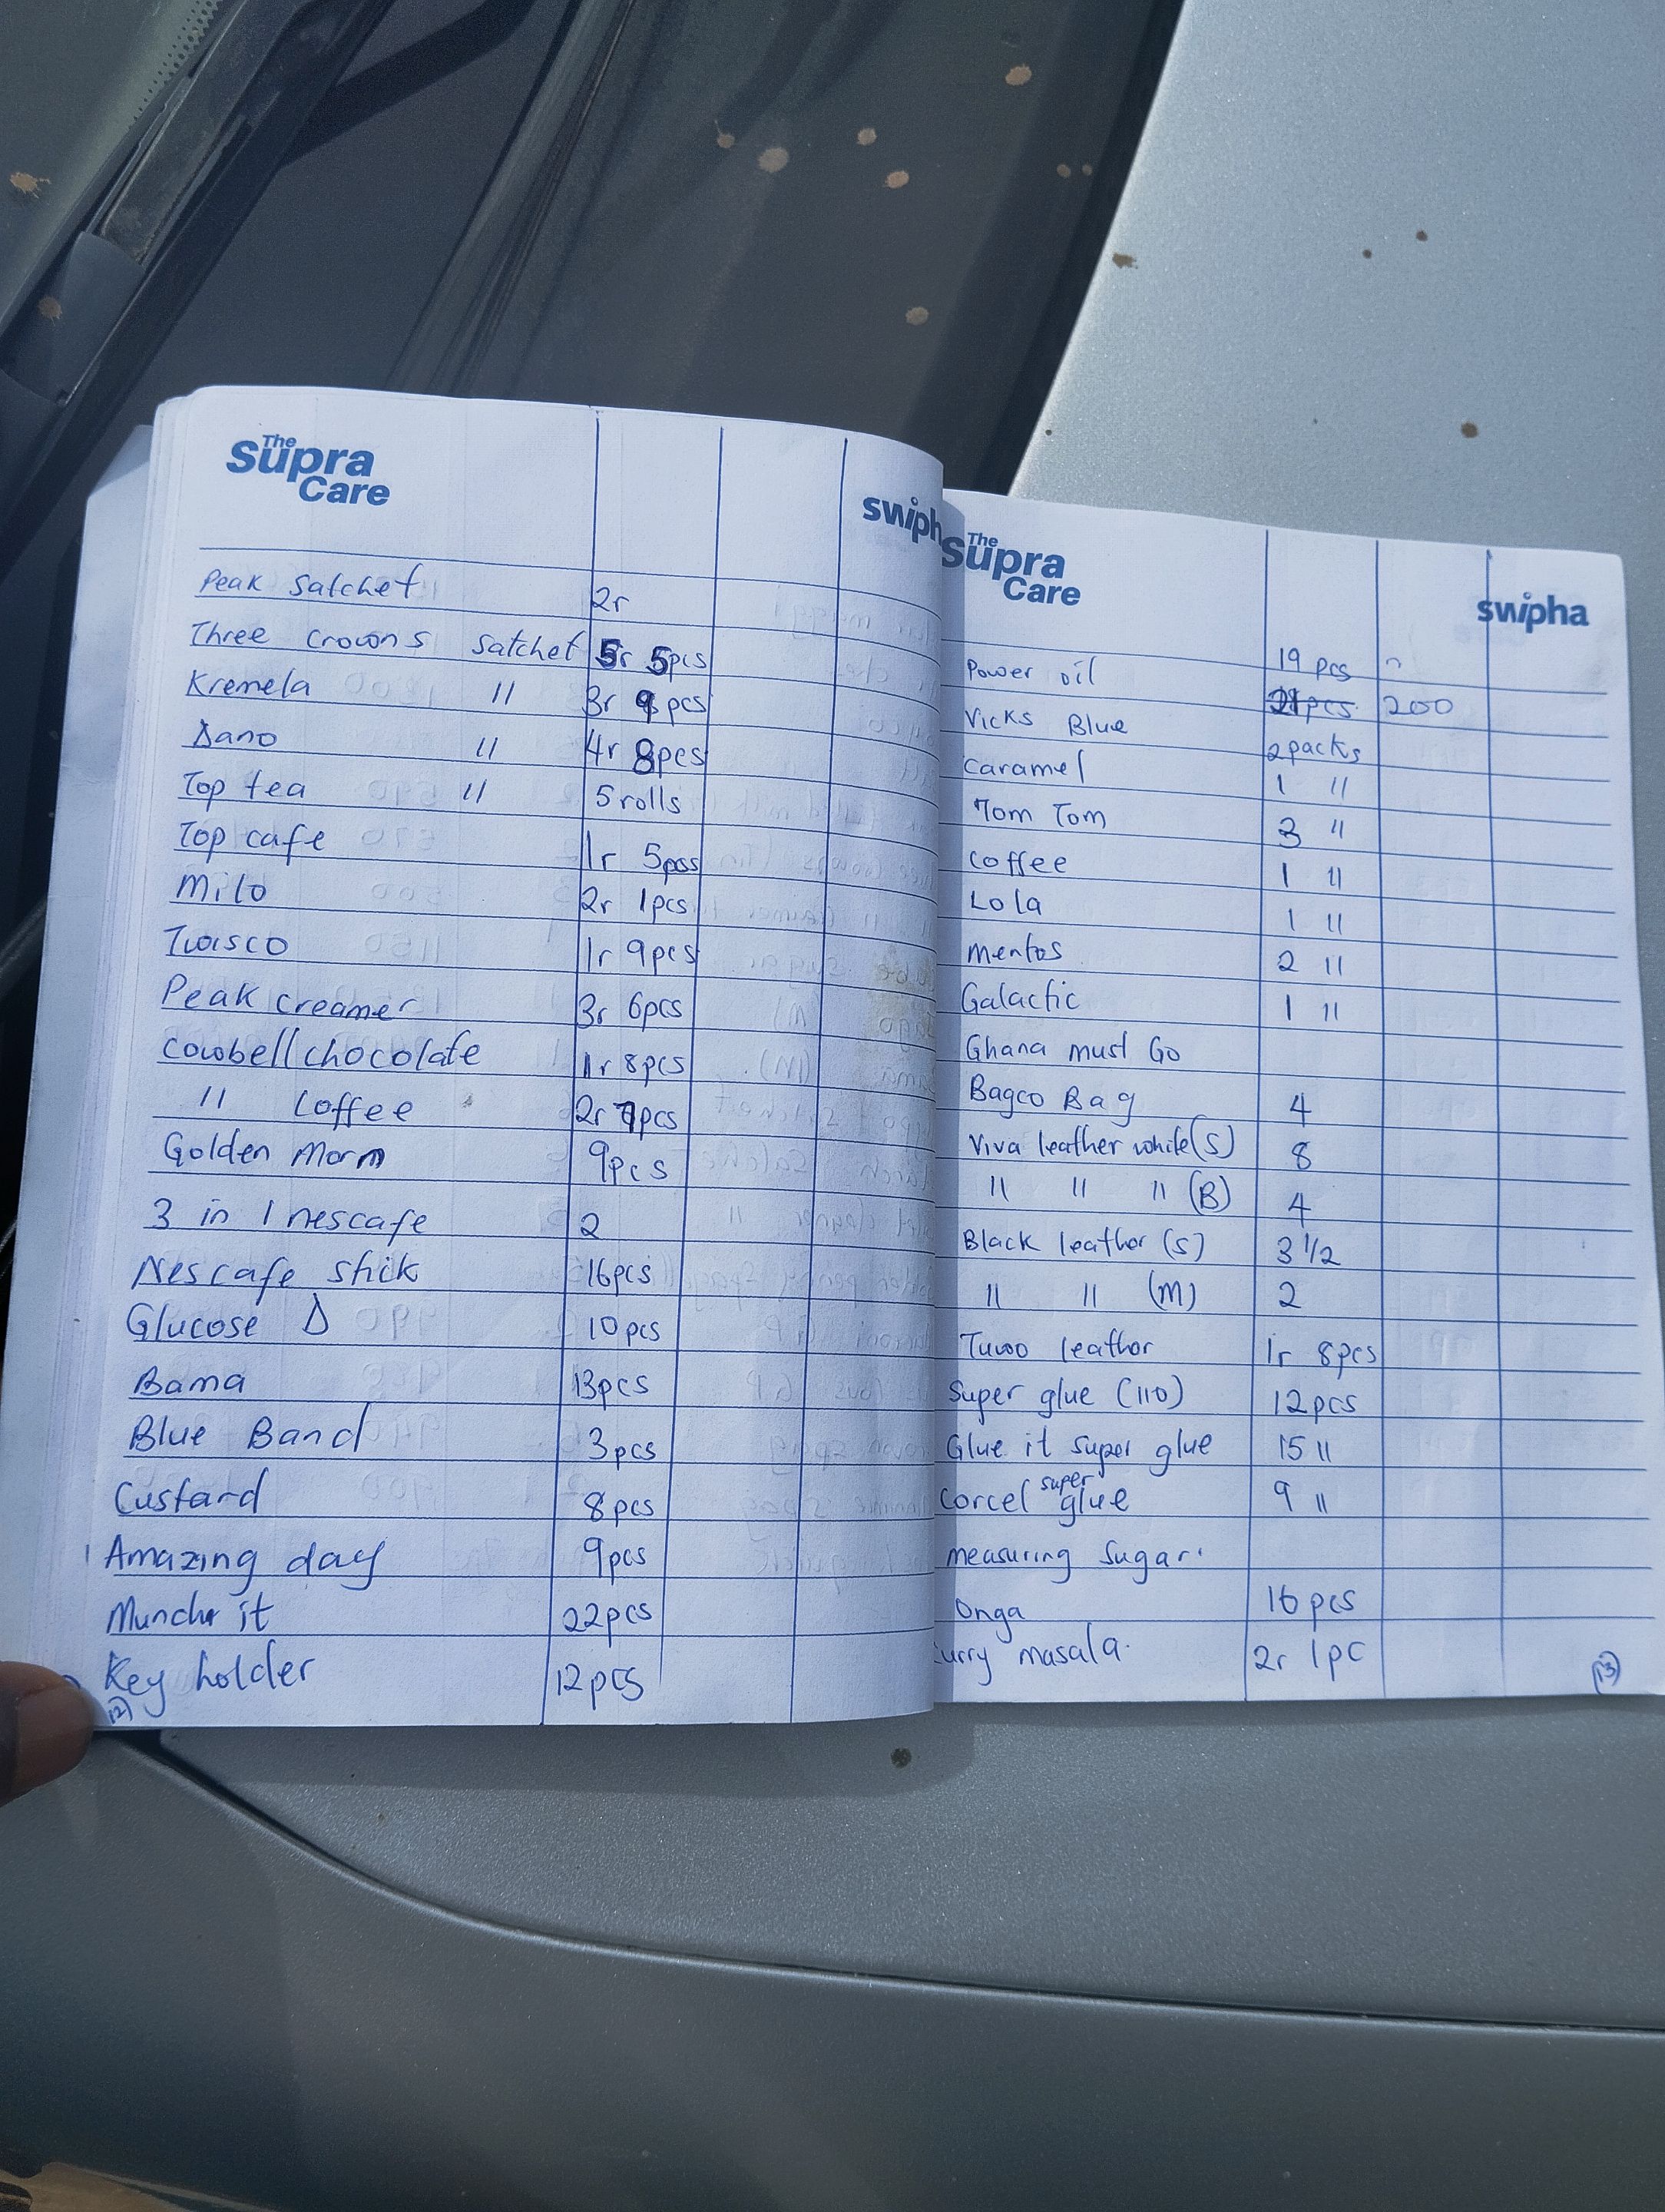 The Supra Care
swiph
Peak Satchet 2r
Three Crowns Satchet 5r 5pcs
Kremela 11 3r 9pcs
Dano 11 4r 8pcs
Top tea 11 5rolls
Top cafe 1r 5pcs
Milo 2r 1pcs
Twisco 1r 9pcs
Peak creamer 3r 6pcs
Cowbell chocolate 1r 8pcs
11 Coffee 2r 7pcs
Golden Morn 9pcs
3 in 1 nescafe 2
Nescafe stick 16pcs
Glucose D 10pcs
Bama 13pcs
Blue Band 3pcs
Custard 8pcs
Amazing day 9pcs
Munch it 22pcs
Key holder 12pcs
(12)
The Supra Care
swipha
Power oil 19 pcs
Vicks Blue 21pcs 200
2packs
Caramel 1 11
Tom Tom 3 11
Coffee 1 11
Lola 1 11
Mentos 2 11
Galactic 1 11
Ghana must Go
Bagco Bag 4
Viva leather white (S) 8
11 11 11 (B) 4
Black leather (S) 3 1/2
11 11 (M) 2
Tuwo leather 1r 8pcs
Super glue (110) 12pcs
Glue it super glue 15 11
Corcel super glue 9 11
measuring Sugar.
Onga 16 pcs
urry masala. 2r 1pc
(13)